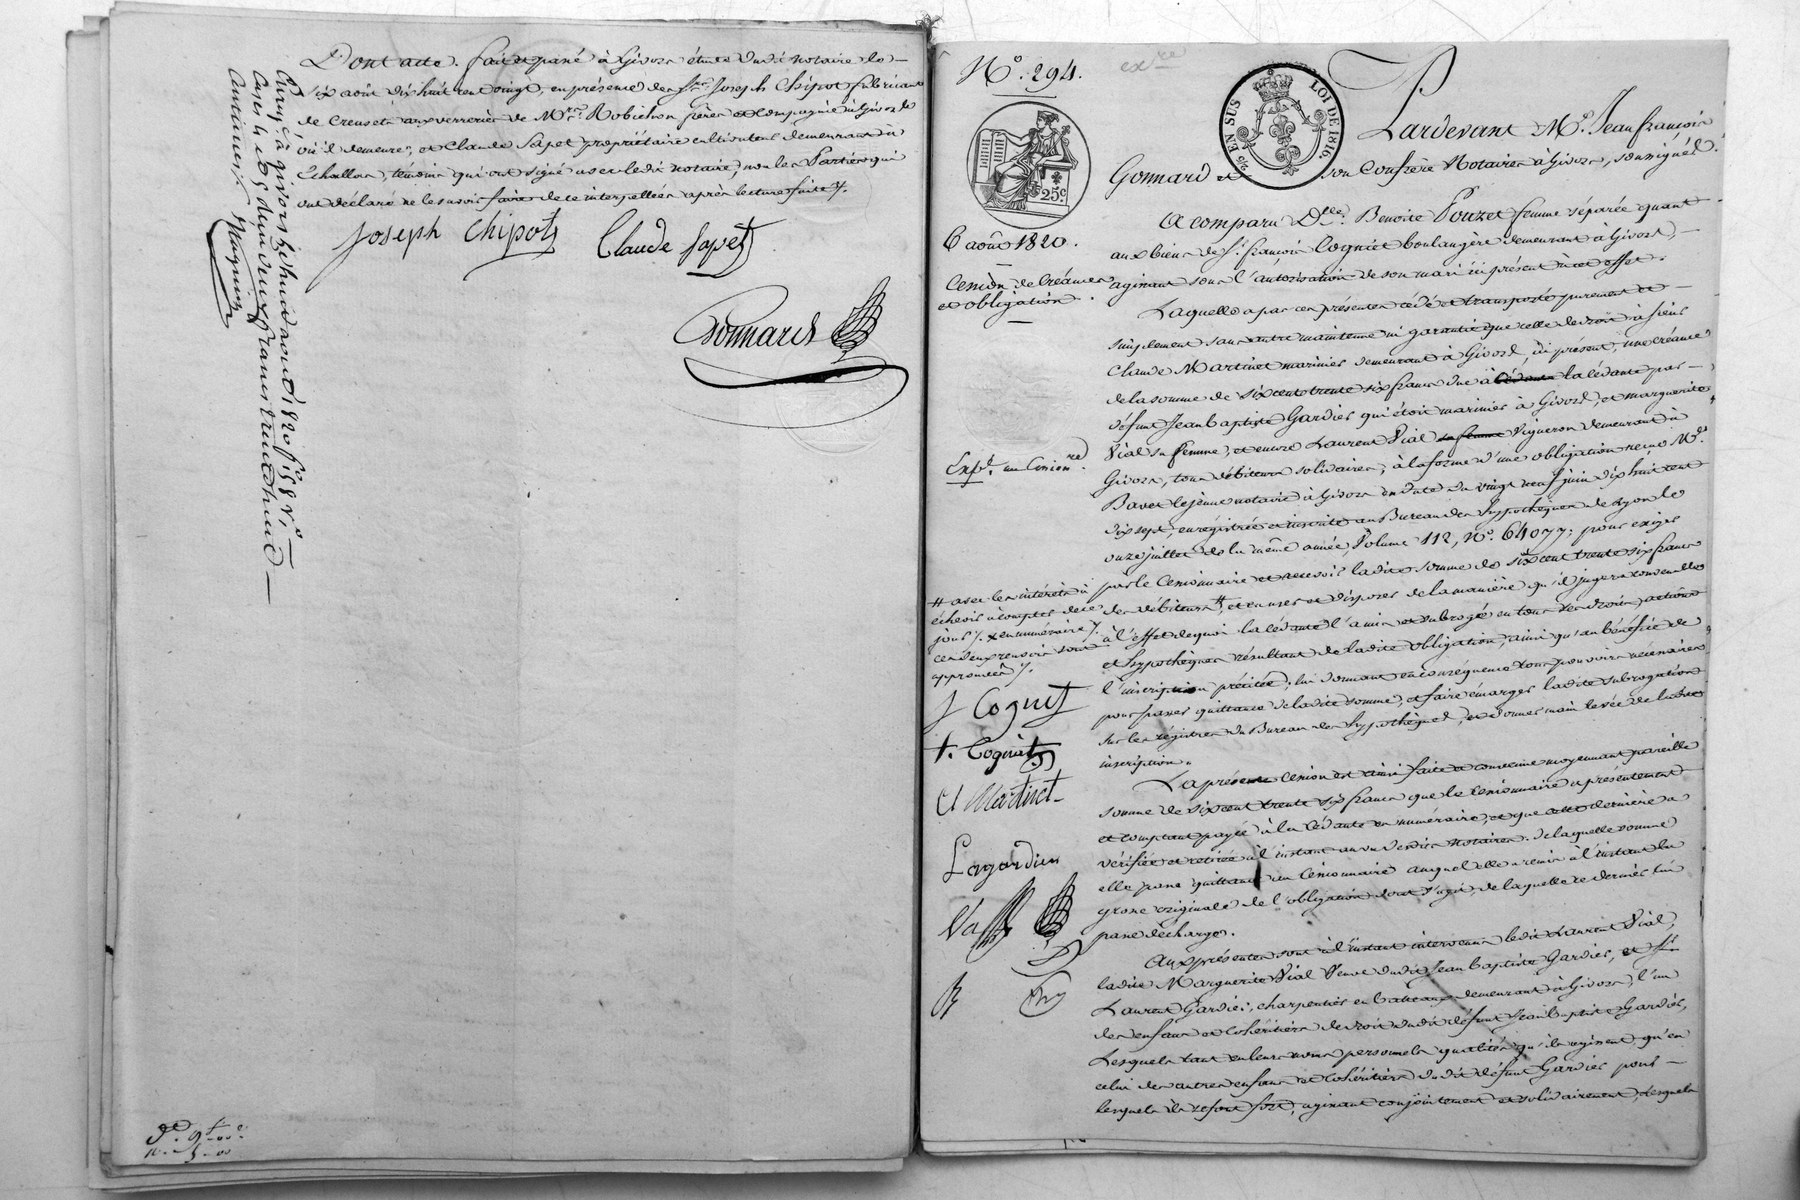 Dont acte. fait et passé à Givors étude dudit notaire le
six août dix huit cent vingt, en présence de Srs. Joseph Chipot fabricant
de Creusets aux verreries de Mrs. Robichon frères et Compagnie à Givors
où il demeure, et Claude Sapet propriétaire cultivateur demeurant à
Echallas, témoins qui ont signé avec ledit notaire, non les Parties qui
ont déclaré ne le savoir faire de ce interpellées après lecture faite ./.
Joseph Chipot
Claude Sapet
Gonnard
Enreg. à givors le huit aout 1820 fo. 58 Vo.
Cases
Centimes
Nº. 294.
25 EN SUS
LOI DE 1816.
25c.
Pardevant Me. Jean françois
Gonnard et son Confrère Notaires à Givors, soussignés.
6 août 1820.
Cession de Créances
et obligation.
A comparu Dlle. Benoite Pouzet femme séparée quant
aux biens de Sr. françois Cogniet boulangère demeurant à Givors,
agissant sous l'autorisation de son mari ici présent à cet effet.
Laquelle a par ces présentes cédé et transporté purement et
simplement sans autre maintenue ni garantie que celle de droit à sieur
Claude Martinet marinier demeurant à Givors, ici présent, une créance
de la somme de six cent trente six francs due à la cédante par
défunt Jean baptiste Gardier qui étoit marinier à Givors, et marguerite
Vial sa femme, et encore Laurent Vial vigneron demeurant à
Expd. au Cessionre.
Givors, tous débiteurs solidaires, à la forme d'une obligation reçue Me.
Bavet lejeune notaire à Givors en date du vingt neuf juin dix huit cent
dix sept, enregistrée et inscrite au Bureau des hypothèques de Lyon le
onze juillet de la même année, Volume 112, Nº. 64077; pour exiger
par le Cessionnaire et recevoir ladite somme de six cent trente six francs
des débiteurs #, et en user et disposer de la manière qu'il jugera convenable
à l'effet de quoi la cédante l'a mis et subrogé en tous ses droits, actions
et hypothèques résultant de ladite obligation, ainsi qu'au bénéfice de
l'inscription précitée; lui donnant en conséquence tous pouvoirs nécessaires
pour passer quittance de ladite somme, et faire émarger ladite subrogation
sur les régistres du Bureau des hypothèques, et donner main levée de ladite
inscription.
# avec les intérêts à
échoir à compter de ce
jour ./. x en numéraire ./.
ces deux renvois sont
approuvés ./.
J Cogniet
f. Cogniet
Cl Martinet
Lagardier
La présente cession est ainsi faite et consentie moyennant pareille
somme de six cent trente six francs que le cessionnaire a présentement
et comptant payée à la cédante en numéraire, et que cette dernière a
vérifiée et retirée à l'instant au vu desdits notaires. de laquelle somme
elle passe quittance au cessionnaire auquel elle a remis à l'instant la
grosse originale de l'obligation dont s'agit, de laquelle ce dernier lui
passe décharge.
Aux présentes sont à l'instant intervenus ledit Laurent Vial,
ladite Marguerite Vial Veuve dudit Jean baptiste Gardier, et Sr.
Laurent Gardier, charpentier en bateaux demeurant à Givors, l'un
des enfans et cohéritiers de droit dudit défunt Jean baptiste Gardier,
Lesquels tant en leurs noms personnels qualités qu'ils agissent, qu'en
celui des autres enfans et cohéritiers dudit défunt Gardier pour
lesquels ils se font fort, agissant conjointement et solidairement, lesquels